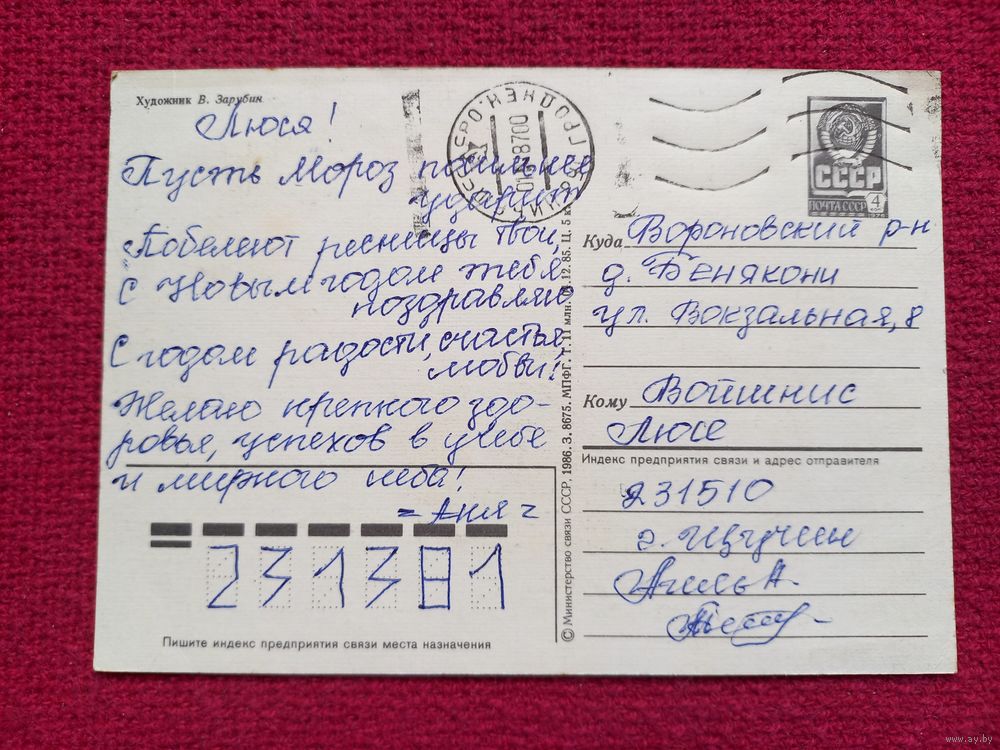 Художник В. Зарубин
Люся!
Пусть Мороз посильнее
ударит
Побелеют ресницы твои,
С Новым годом тебя
поздравляю
С годом радости, счастья,
любви!
Желаю крепкого здо-
ровья, успехов в учебе
и мирного неба!
= Аня =
231381
Пишите индекс предприятия связи места назначения
© Министерство связи СССР, 1986. З. 8675. МПФГ. Т. 11 млн. 12. 85. Ц. 5 к.
ГРОДНЕН.
8700
СССР
ПОЧТА СССР
4
1976
Куда Вороновский р-н
д. Бенякони
ул. Вокзальная, 8
Кому Войшнис
Люсе
Индекс предприятия связи и адрес отправителя
231510
г. Щучин
www.ay.by